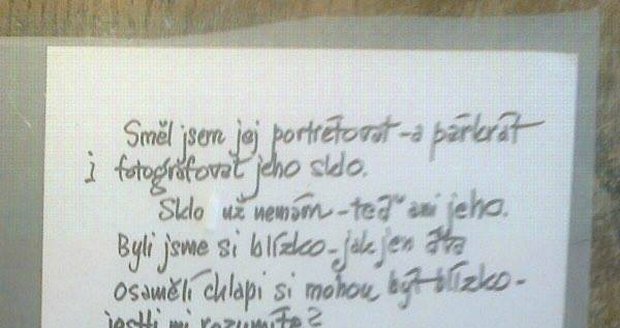 Směl jsem jej portrétovat – a párkrát
i fotografovat jeho sklo.
Sklo už nemám – teď ani jeho.
Byli jsme si blízko – jak jen dva
osamělí chlapi si mohou být blízko –
jestli mi rozumíte?